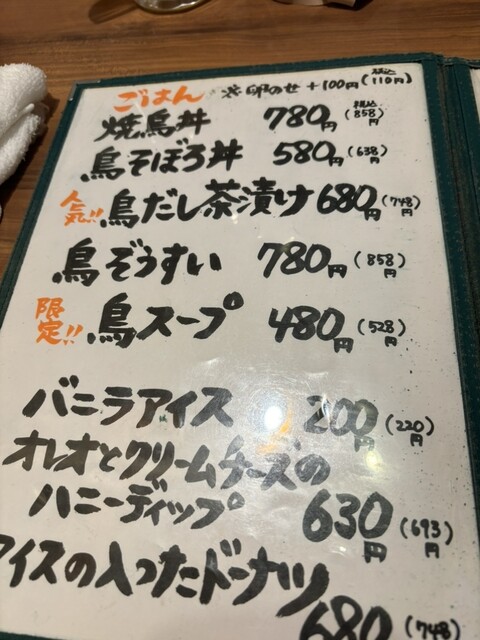 ごはん ※卵のせ +100円(税込110円)
焼鳥丼 780円(税込858円)
鳥そぼろ丼 580円(638円)
人気!! 鳥だし茶漬け 680円(748円)
鳥ぞうすい 780円(858円)
限定!! 鳥スープ 480円(528円)
バニラアイス 200円(220円)
オレオとクリームチーズの
ハニーディップ 630円(693円)
アイスの入ったドーナツ
680(748)